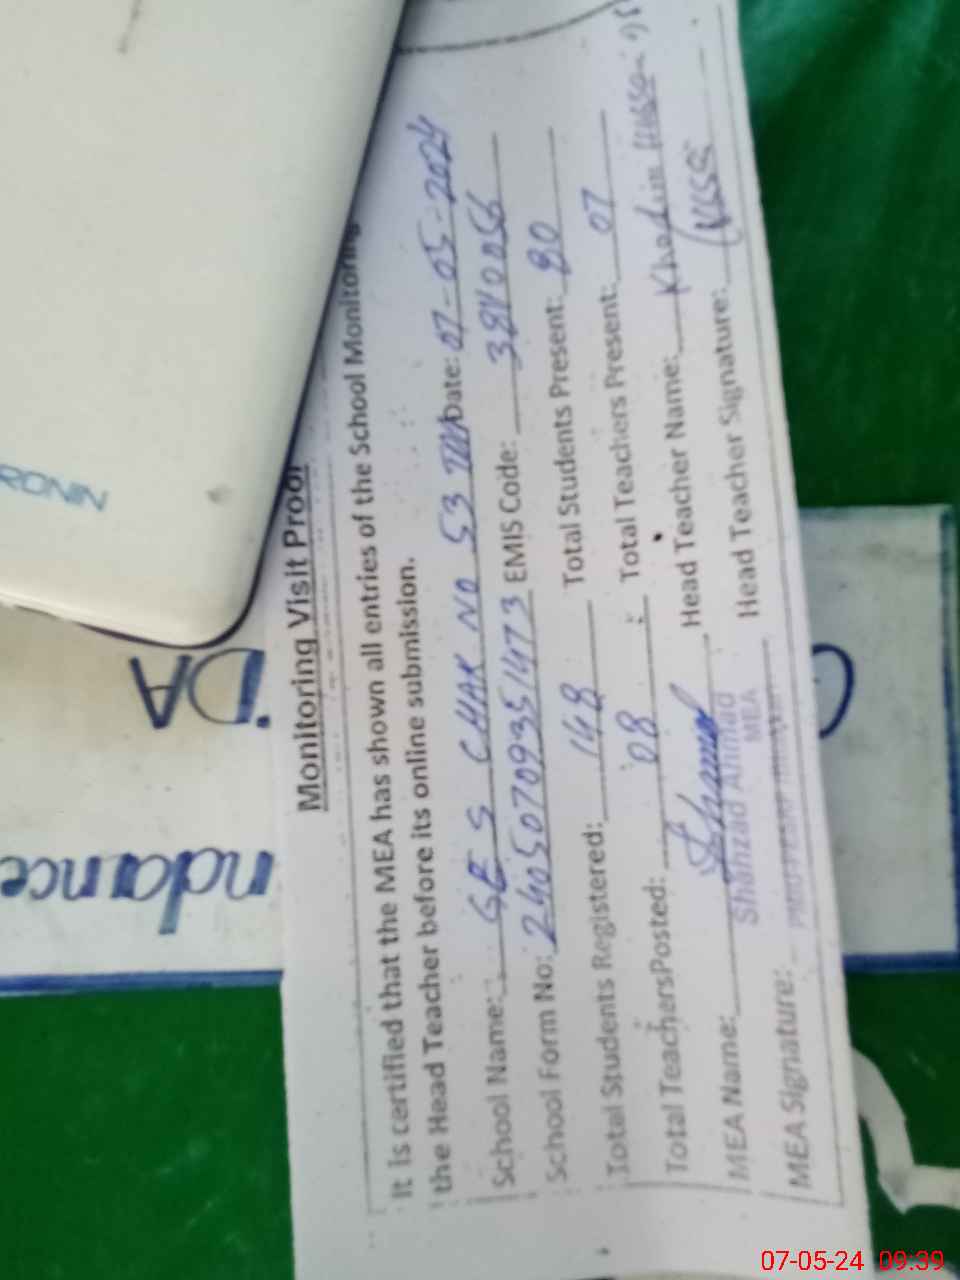 Monitoring Visit Proof
It is certified that the MEA has shown all entries of the School Monitoring
the Head Teacher before its online submission.
School Name: GES CHAK NO 53 Date: 07-05-2024
School Form No: 24050709351473 EMIS Code: 38140056
Total Students Registered: 148 Total Students Present: 80
Total Teachers Posted: 08 Total Teachers Present: 07
MEA Name: Head Teacher Name: Khadim Hassan
Shahzad Ahmad
MEA
MEA Signature: Head Teacher Signature:
RONIN
DA
ndance
07-05-24 09:39